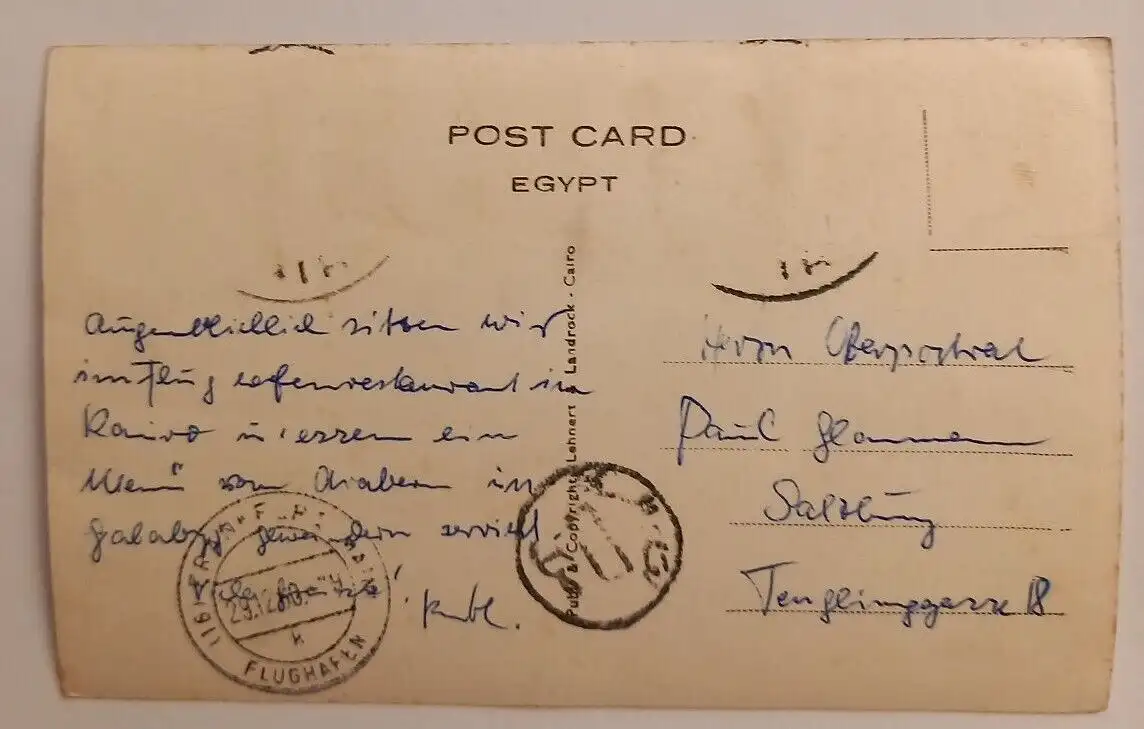 POST CARD
EGYPT
Augenblicklich sitzen wir
im Flughafenrestaurant in
Kairo u. essen ein
Menü von Arabern in
gewändern serviert
Viele Grüße!
Publ. & Copyright Lehnert & Landrock - Cairo
Herrn Oberpostrat
Paul
Salzburg
Tenglinggasse 18
FLUGHAFEN
k